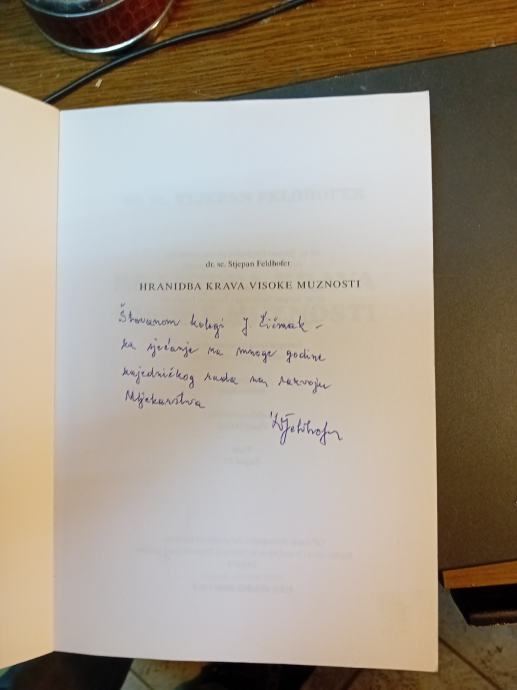 dr. sc. Stjepan Feldhofer
HRANIDBA KRAVA VISOKE MUZNOSTI
Štovanom kolegi J. Čičmak -
za sjećanje na mnoge godine
zajedničkog rada na razvoju
Mljekarstva
Feldhofer